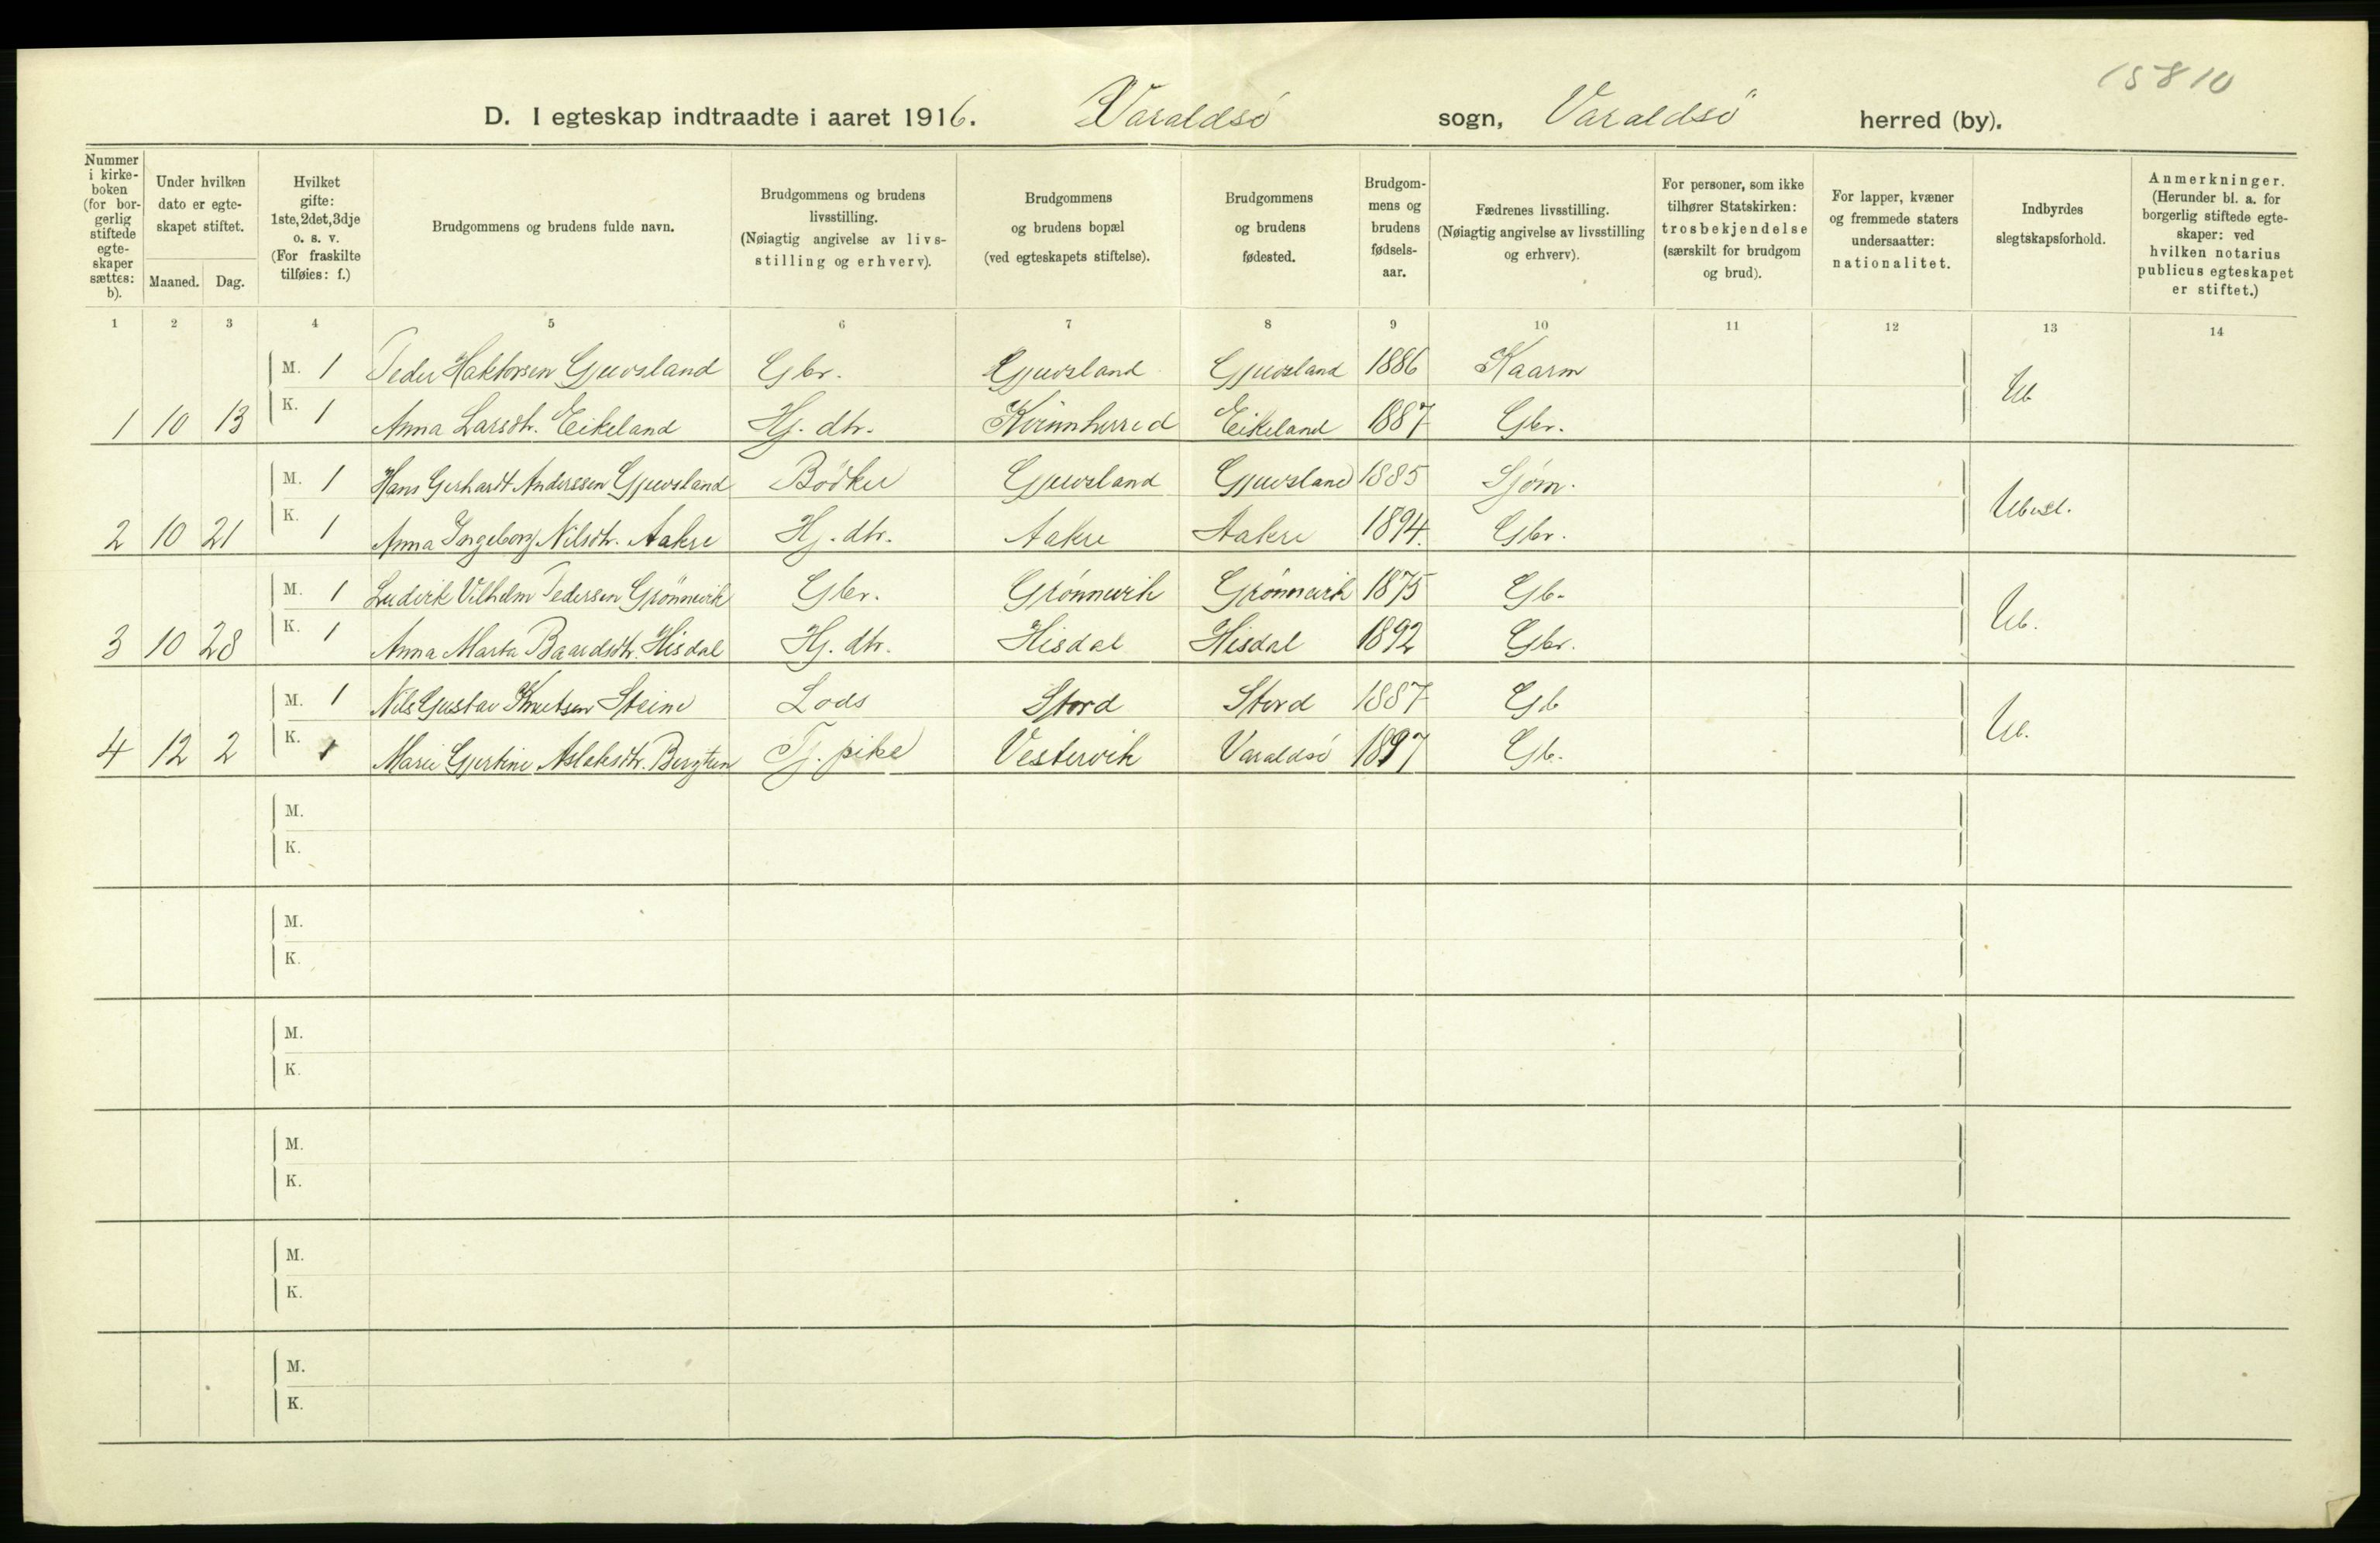 15810
D. I egteskap indtraadte i aaret 1916. Varaldsö sogn, Varaldsö herred (by).
Nummer i kirke-boken (for bor-gerlig stiftede egte-skaper sættes: b).
Under hvilken dato er egte-skapet stiftet.
Maaned. Dag.
Hvilket gifte: 1ste, 2det, 3dje o. s. v. (For fraskilte tilføies: f.)
Brudgommens og brudens fulde navn.
Brudgommens og brudens livsstilling. (Nøiagtig angivelse av livs-stilling og erhverv).
Brudgommens og brudens bopæl (ved egteskapets stiftelse).
Brudgommens og brudens fødested.
Brudgom-mens og brudens fødsels-aar.
Fædrenes livsstilling. (Nøiagtig angivelse av livsstilling og erhverv).
For personer, som ikke tilhører Statskirken: trosbekjendelse (særskilt for brudgom og brud).
For lapper, kvæner og fremmede staters undersaatter: nationalitet.
Indbyrdes slegtskapsforhold.
Anmerkninger. (Herunder bl. a. for borgerlig stiftede egte-skaper: ved hvilken notarius publicus egteskapet er stiftet.)
1 2 3 4 5 6 7 8 9 10 11 12 13 14
M. 1 Peder Haktorsen Gjuvsland Gbr. Gjuvsland Gjuvsland 1886 Kaarm
Ub
1 10 13 K. 1 Anna Larsdtr. Eikeland Hj. dtr. Kvinnherred Eikeland 1887 Gbr.
M. 1 Hans Gerhardt Anderssen Gjuvsland Bödker Gjuvsland Gjuvsland 1885 Sjøm.
Ubesl.
2 10 21 K. 1 Anna Ingeborg Nilsdtr. Aakre Hj. dtr. Aakre Aakre 1894. Gbr.
M. 1 Ludvik Vilhelm Pedersen Grönnevik Gbr. Grönnevik Grönnevik 1875 Gb.
Ub.
3 10 28 K. 1 Anna Marta Baardsdtr. Hisdal Hj. dtr. Hisdal Hisdal 1892 Gbr.
M. 1 Nils Gustav Knutsen Steine Lods Stord Stord 1887 Gb
Ub.
4 12 2 K. 1 Marie Gjertine Aslaksdtr. Tj. pike Vestervik Varaldsö 1897 Gb.
M.
K.
M.
K.
M.
K.
M.
K.
M.
K.
M.
K.